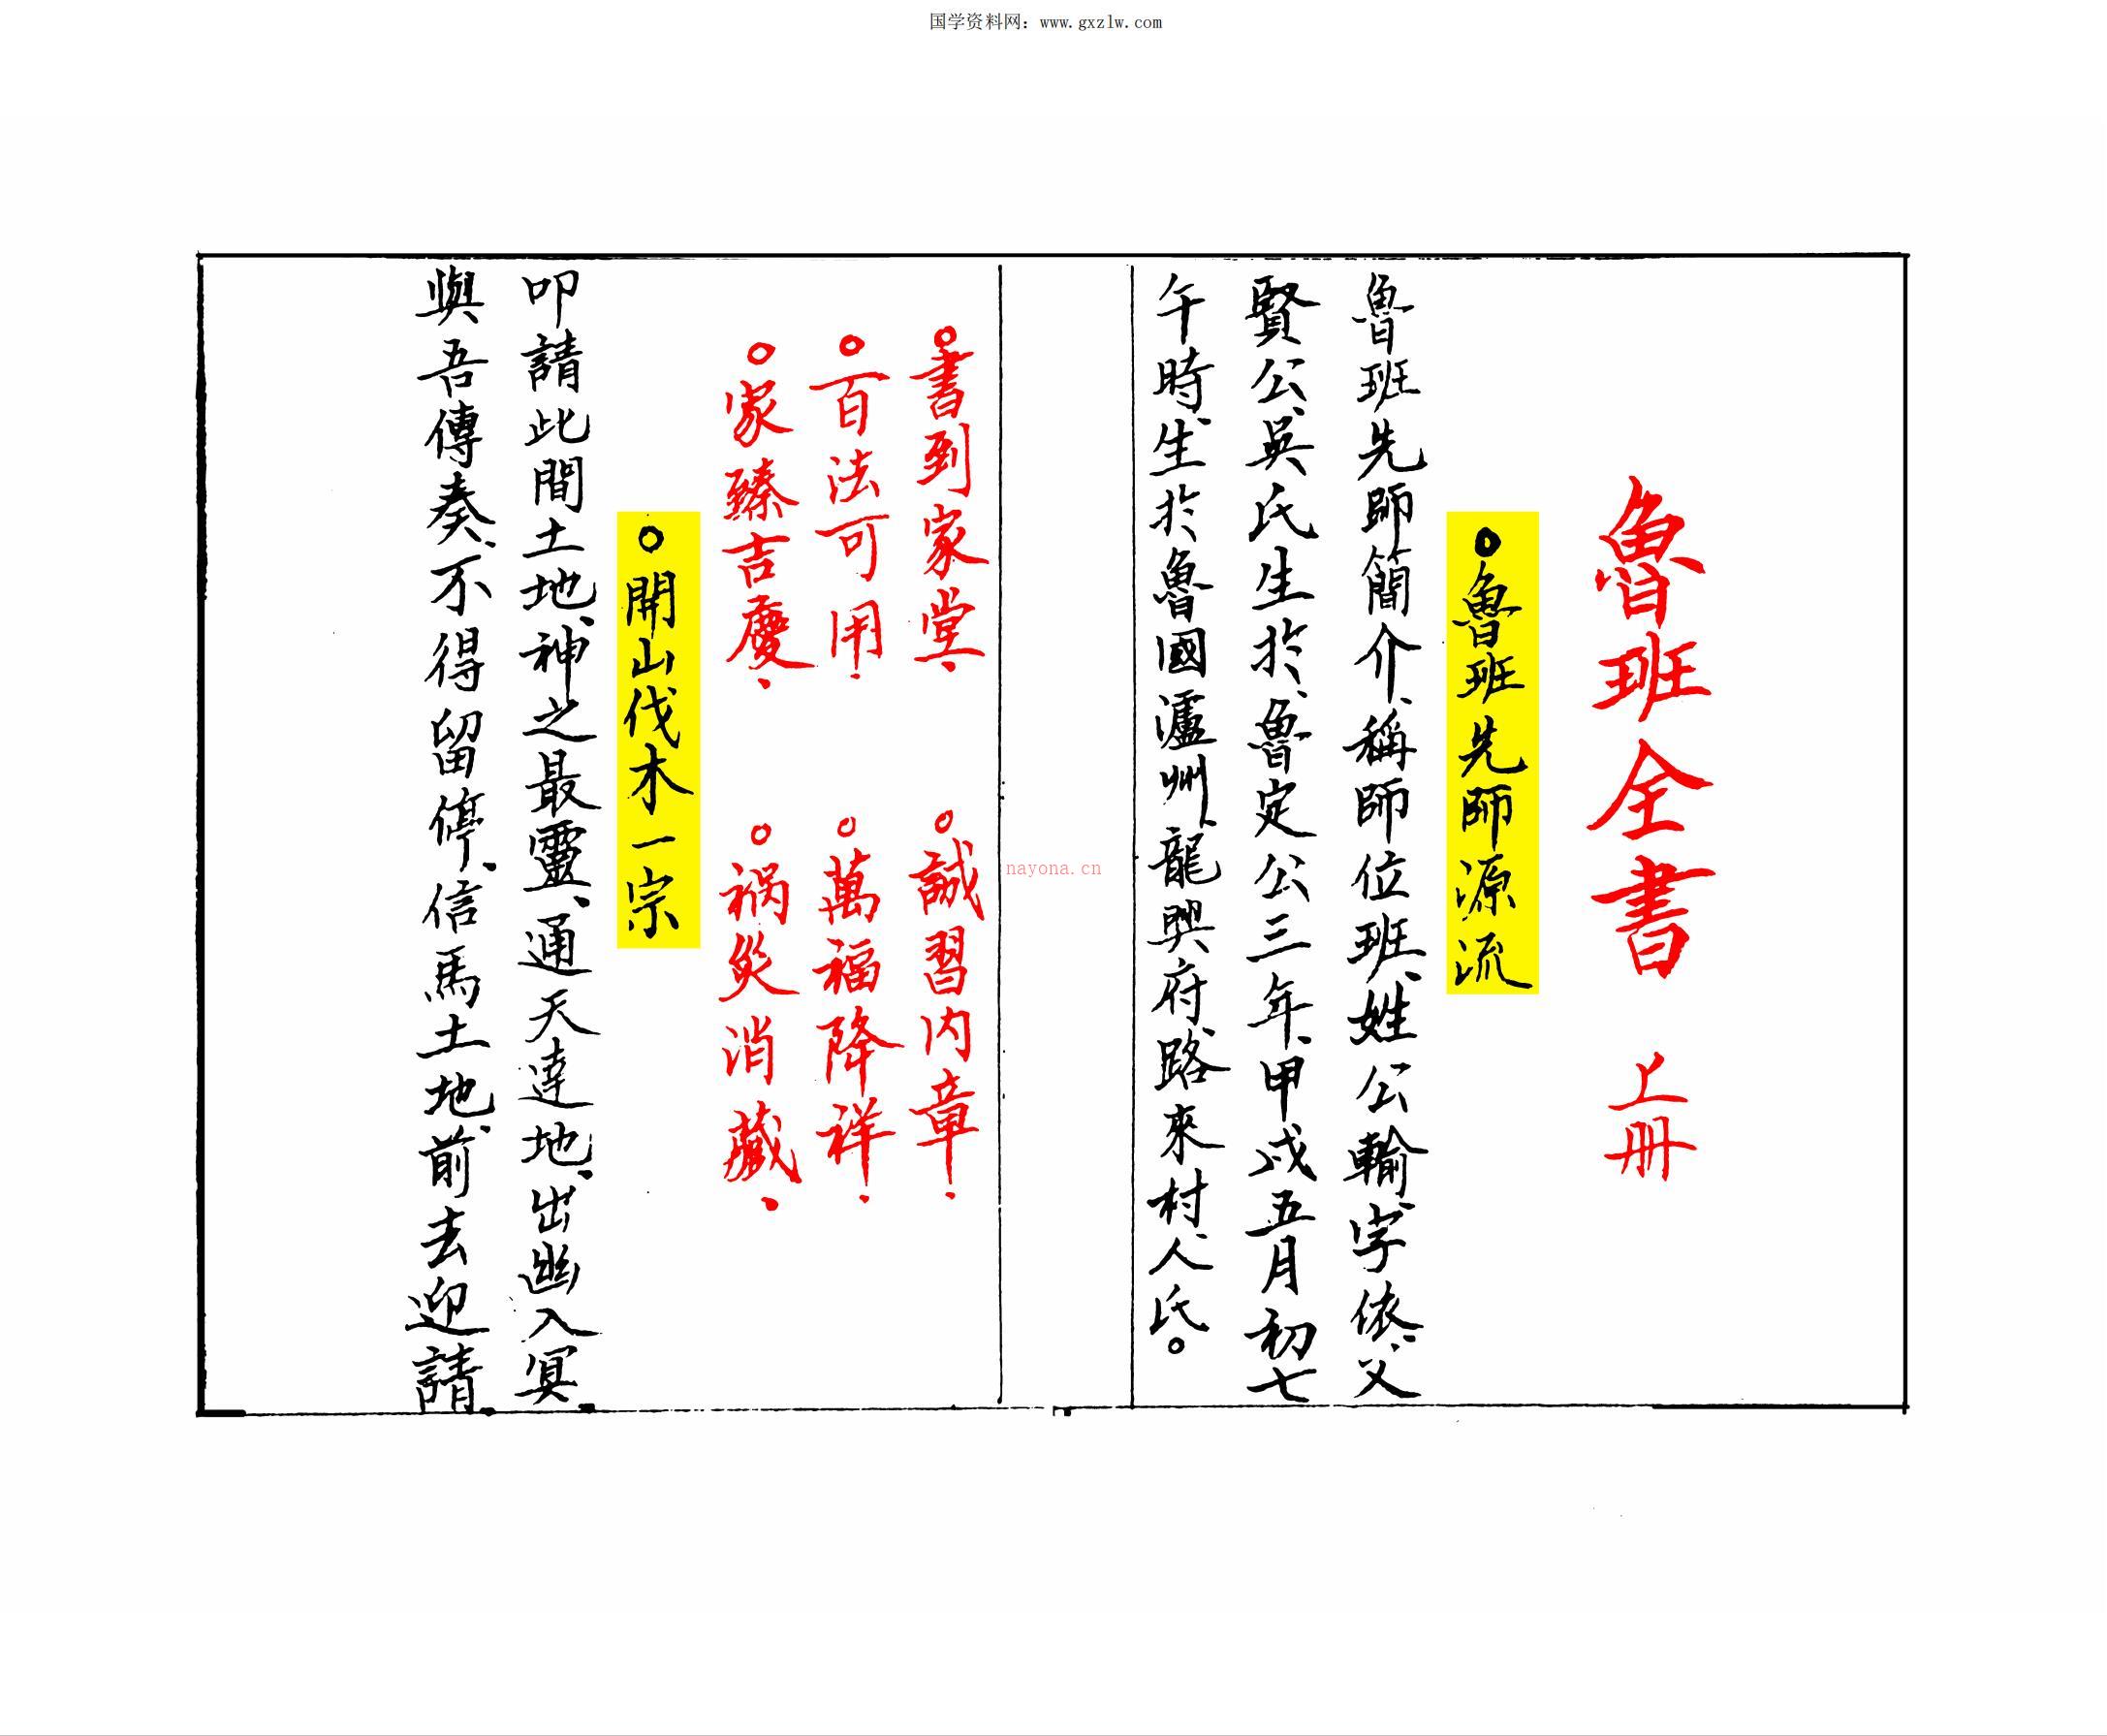 国学资料网：www.gxzlw.com
魯班全書 上册
魯班先師源流
魯班先師簡介、稱師位班、姓公輸、字依、又
賢公、吳氏生於、魯定公三年、甲戌五月初七
午時、生於魯國瀘州、龍興府、路來村、人氏。
書到家堂、 誠習内章、
百法可用、 萬福降祥、
家臻吉慶、 禍災消藏、
開山伐木一宗
叩請此間土地、神之最靈、通天達地、出幽入冥、
與吾傳奏、不得留停、信馬土地、前去迎請、
nayona.cn